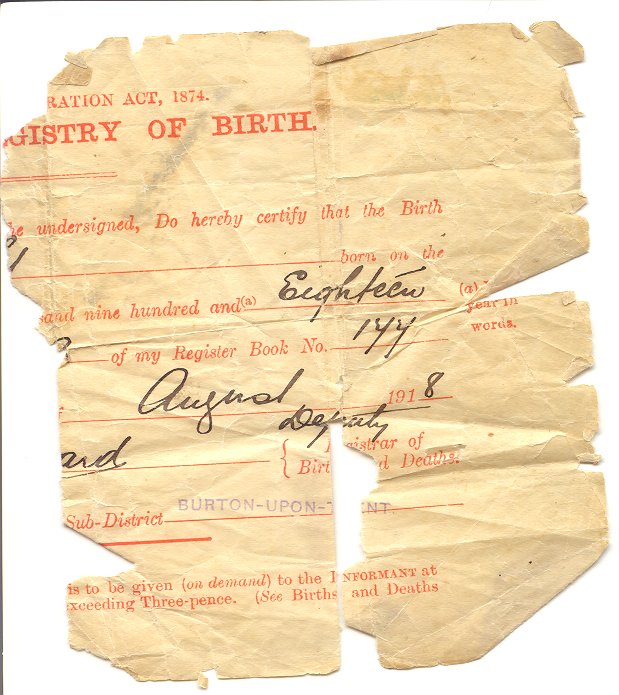 RATION ACT, 1874.
GISTRY OF BIRTH.
he undersigned, Do hereby certify that the Birth
born on the
and nine hundred and (a) Eighteen (a)
year in
words.
of my Register Book No. 144
August 1918
Deputy
ard { istrar of
Birt d Deaths.
Sub-District BURTON-UPON-T ENT.
is to be given (on demand) to the INFORMANT at
xceeding Three-pence. (See Births and Deaths